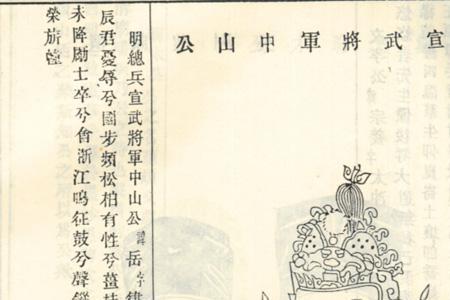 宣武將軍中山公
明總兵宣武將軍中山公諱岳字
辰君憂辱兮國步頻松柏有性兮薑桂
未降勵士卒兮會浙江鳴征鼓兮聲
榮旂幢